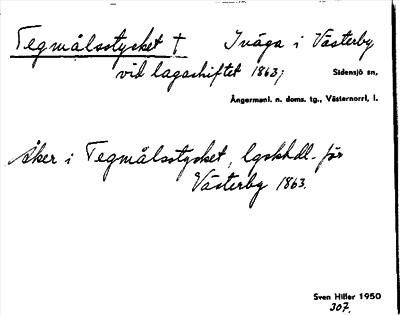 Tegmålsstycket † Ivåga i Västerby
vid lagaskiftet 1863;
Sidensjö sn,
Ångermanl. n. doms. tg., Västernorrl. l.
Åker i Tegmålsstycket, lgskhdl. för
Västerby 1863.
Sven Hiller 1950
307.